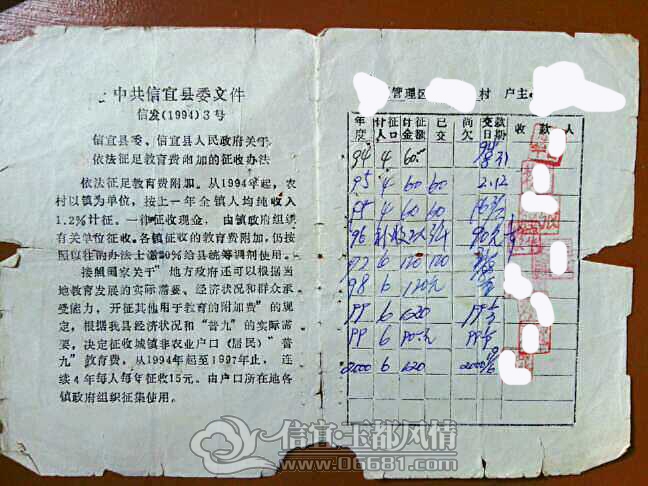 中共信宜县委文件
信发(1994)3号
信宜县委、信宜县人民政府关于
依法征足教育费附加的征收办法
依法征足教育费附加。从1994年起,农
村以镇为单位,按上一年全镇人均纯收入
1.2%计征。一律征收现金,由镇政府组织
有关单位征收。各镇征收的教育费附加,仍按
照以往的办法上缴20%给县统筹调剂使用。
按照国家关于"地方政府还可以根据当
地教育发展的实际需要、经济状况和群众承
受能力,开征其他用于教育的附加费"的规
定,根据我县经济状况和"普九"的实际需
要,决定征收城镇非农业户口(居民)"普
九"教育费,从1994年起至1997年止,连
续4年每人每年征收15元。由户口所在地各
镇政府组织征集使用。
管理区 村 户主
年度 计征人口 计征金额 已交 尚欠 交款日期 收款人
94 4 60
95 4 60 60 2.12
95 4 60 60
96 补收2人
97 6 120 120
98 6 120元
99 6
99 6
2000 6
信宜·玉都风情
www.06681.com